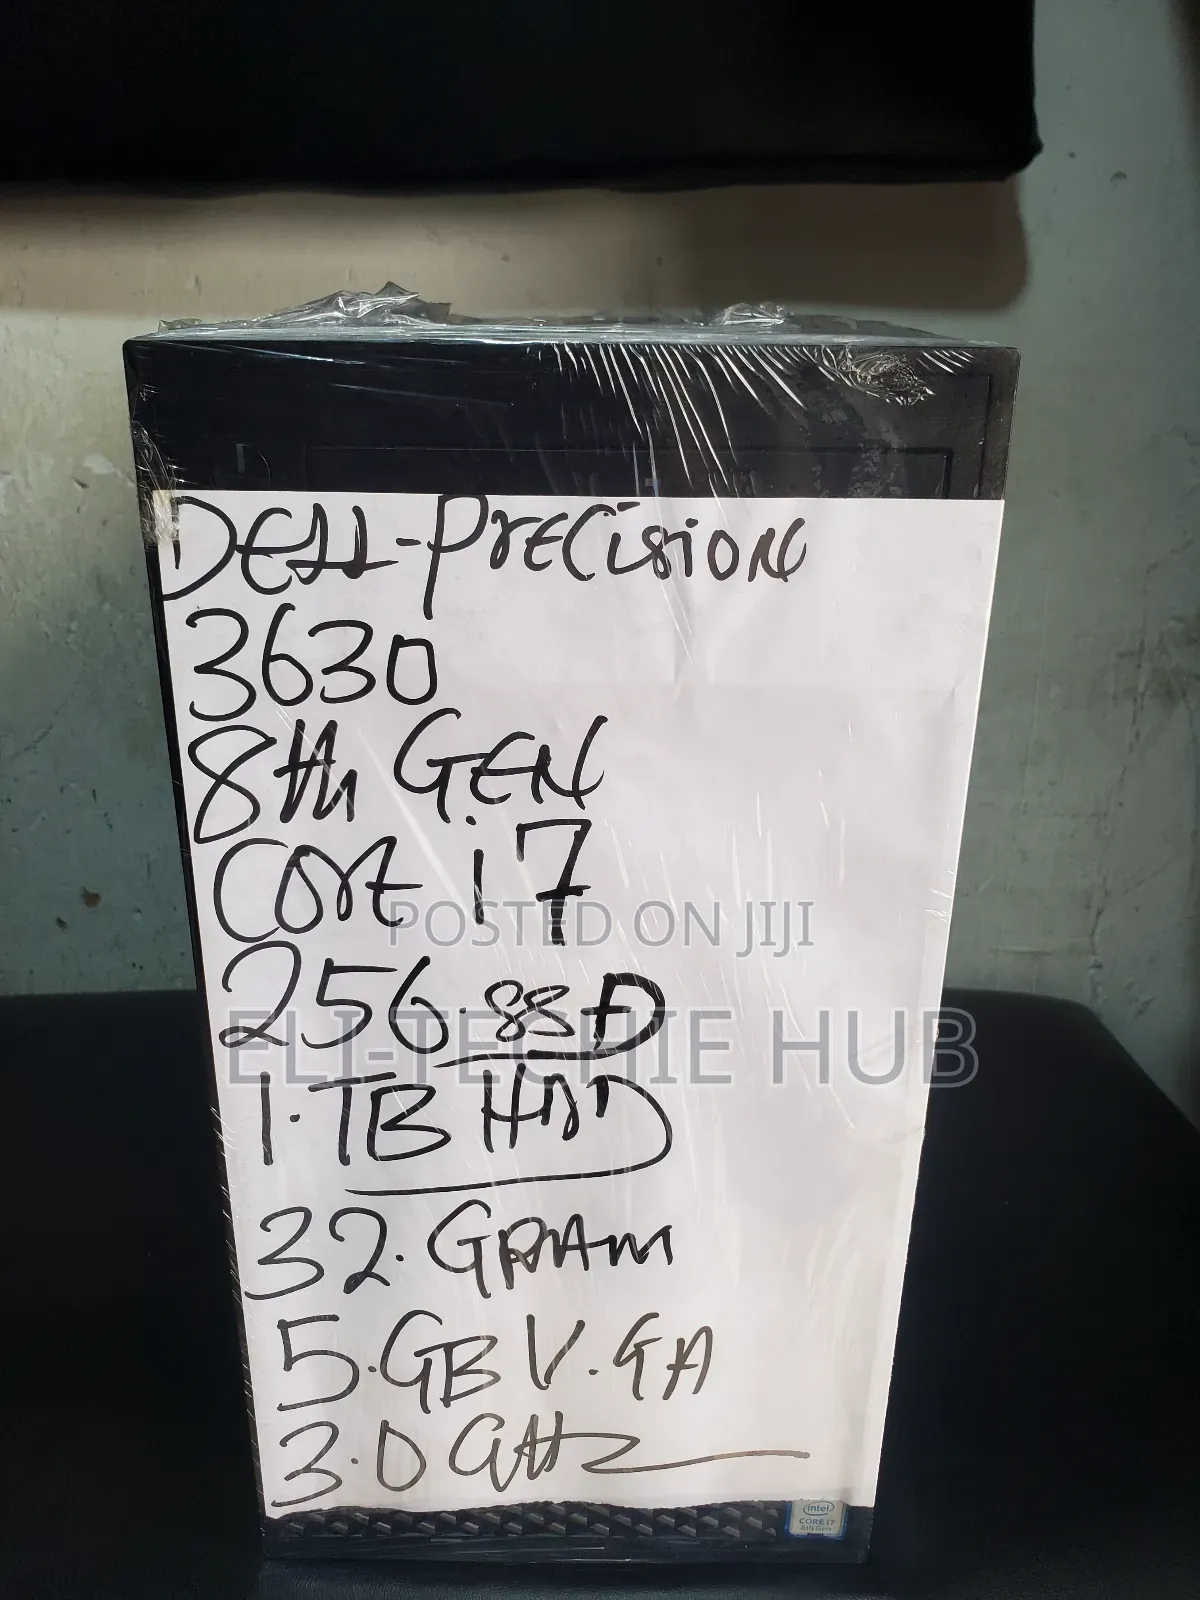 DELL-PrECisiON
3630
8th GEN
Core i7
POSTED ON JIJI
256.SSD
ELI-TECHIE HUB
1.TB HDD
32.GRAM
5.GB V.GA
3.0 GHz
intel
CORE i7
8th Gen